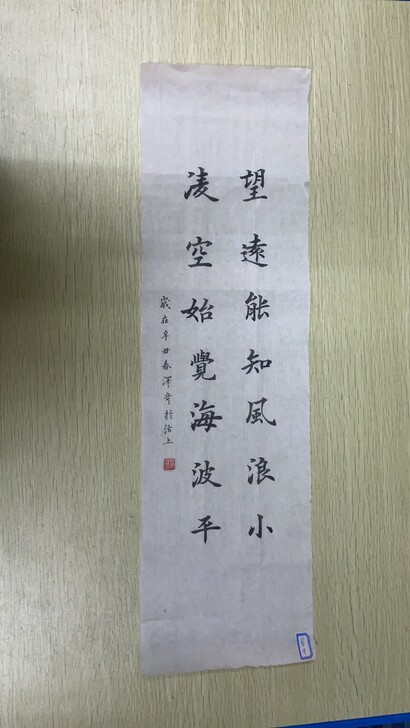 望遠能知風浪小
凌空始覺海波平
歲在辛丑春澤奇於沽上